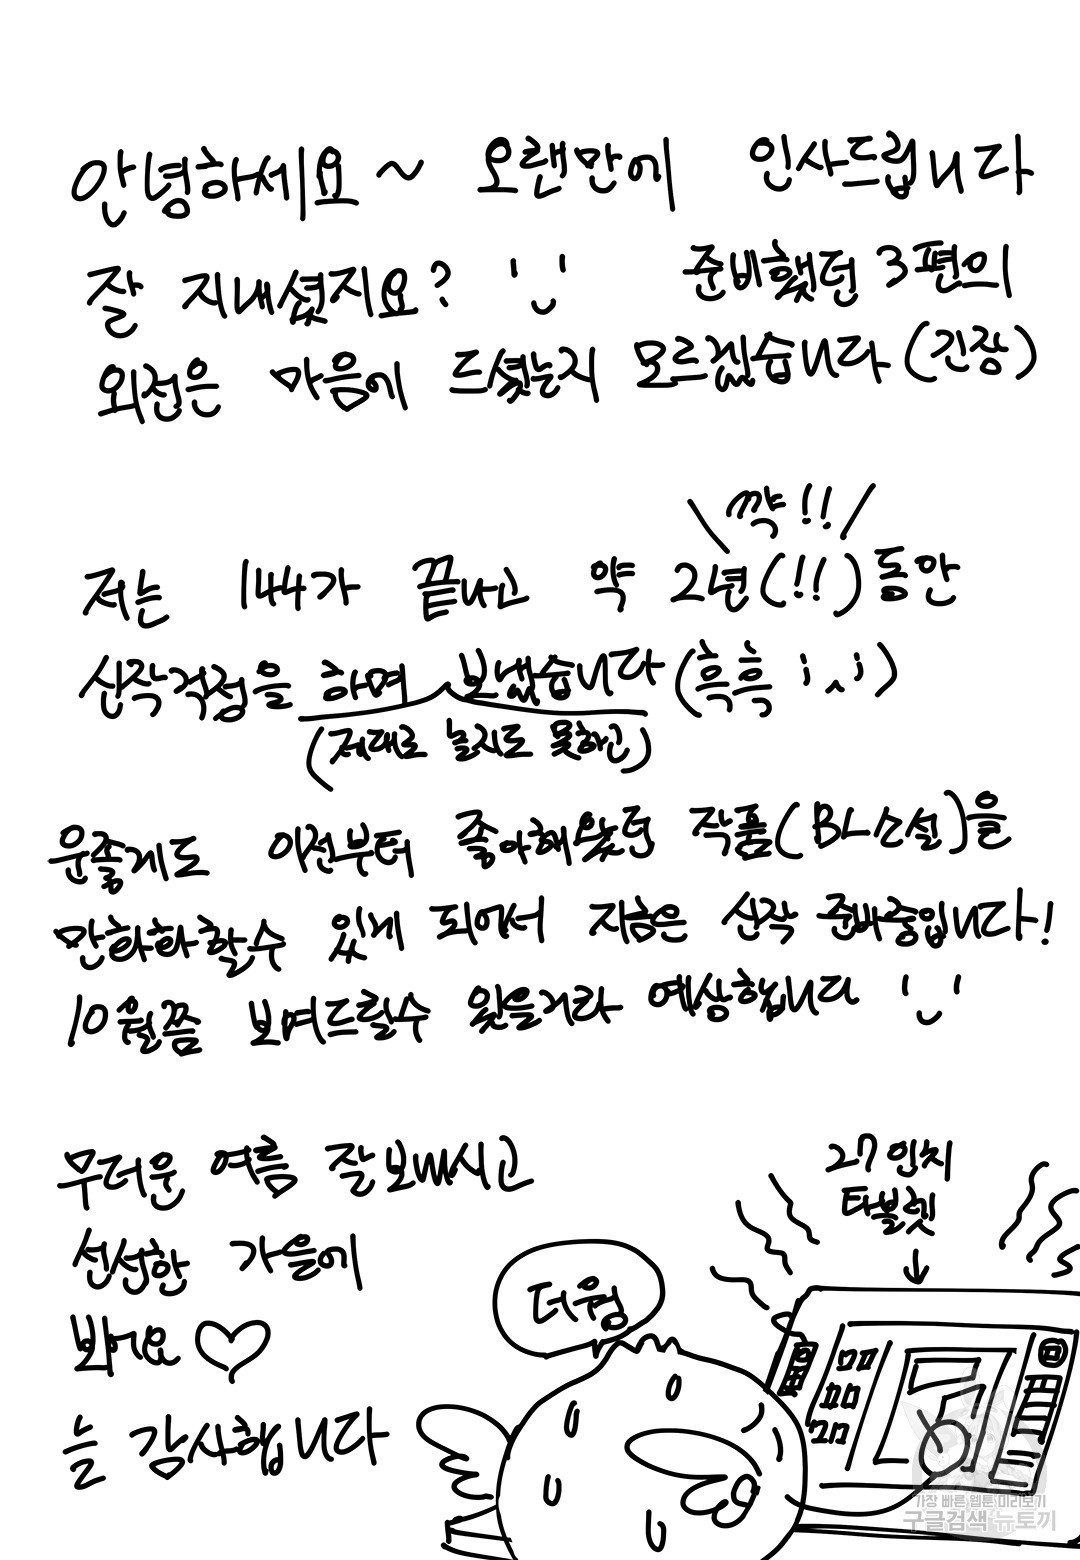 안녕하세요~ 오랜만에 인사드립니다
잘 지내셨지요? 준비했던 3편의
외전은 마음에 드셨는지 모르겠습니다 (긴장)
꺅!!
저는 144가 끝나고 약 2년(!!)동안
신작걱정을 하며 보냈습니다(흑흑
(제대로 놀지도 못하고)
운좋게도 이전부터 좋아해왔던 작품(BL소설)을
만화화할수 있게 되어서 지금은 신작 준비중입니다!
10월쯤 보여드릴수 있을거라 예상합니다
무더운 여름 잘 보내시고
선선한 가을에
봐어요♡
늘 감사합니다
27인치
타블렛
더웡
가장 빠른 웹툰 미리보기
구글검색 뉴토끼